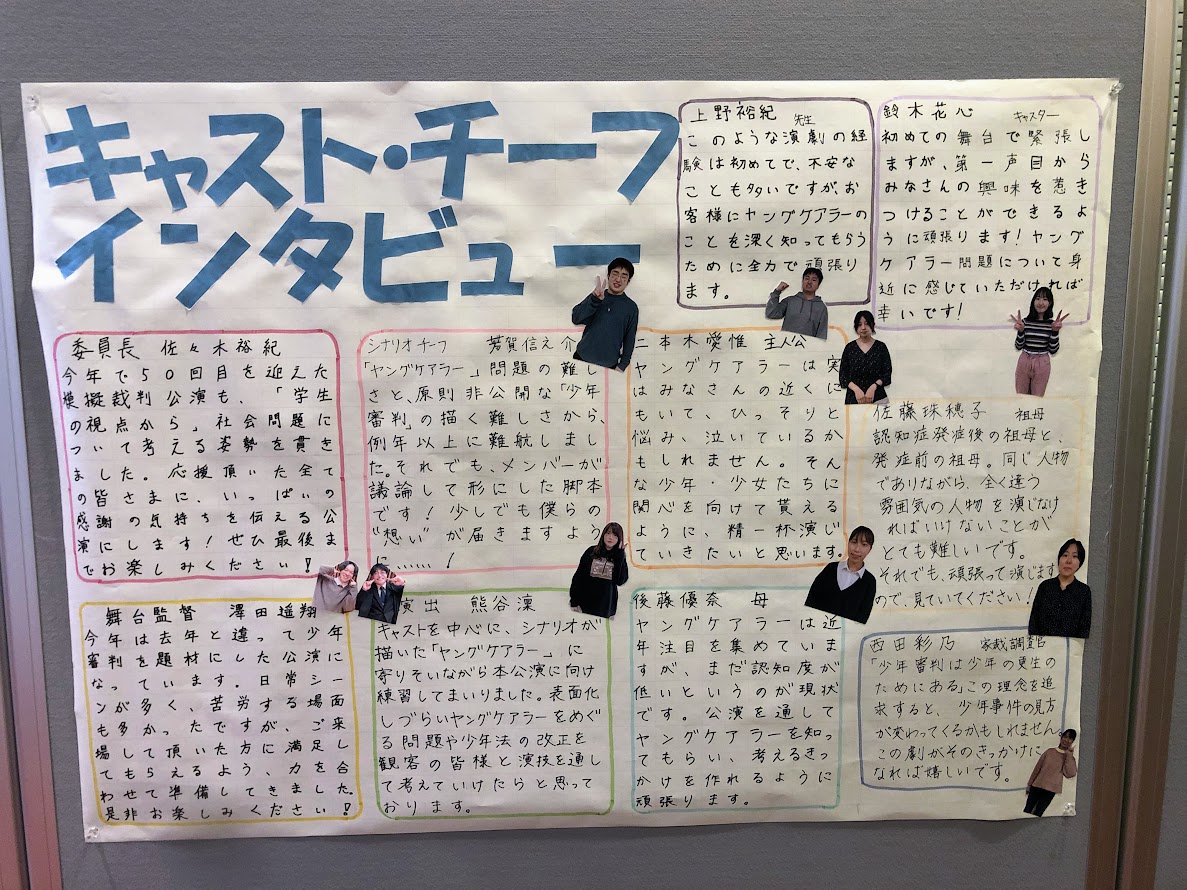 キャスト・チーフ
インタビュー
上野裕紀 先生
このような演劇の経
験は初めてで、不安な
ことも多いですが、お
客様にヤングケアラーの
ことを深く知ってもらう
ために全力で頑張り
ます。
鈴木花心 キャスター
初めての舞台で緊張し
ますが、第一声目から
みなさんの興味を惹き
つけることができるよ
うに頑張ります!ヤング
ケアラー問題について身
近に感じていただければ
幸いです!
委員長 佐々木裕紀
今年で50回目を迎えた
模擬裁判公演も、「学生
の視点から」社会問題に
ついて考える姿勢を貫き
ました。応援頂いた全て
の皆さまに、いっぱいの
感謝の気持ちを伝える公
演にします!ぜひ最後ま
でお楽しみください!
シナリオチーフ 芳賀信之介
「ヤングケアラー」問題の難し
さと、原則非公開な「少年
審判」の描く難しさから、
例年以上に難航しまし
た。それでも、メンバーが
議論して形にした脚本
です!少しでも僕らの
"想い"が届きますよう
に……!
二本木愛惟 主人公
ヤングケアラーは実
はみなさんの近くに
もいて、ひっそりと
悩み、泣いているか
もしれません。そん
な少年・少女たちに
関心を向けて貰える
ように、精一杯演じ
ていきたいと思います。
佐藤珠穂子 祖母
認知症発症後の祖母と、
発症前の祖母。同じ人物
でありながら、全く違う
雰囲気の人物を演じなけ
ればいけないことが
とても難しいです。
それでも、頑張って演じます
ので、見ていてください!
舞台監督 澤田遥翔
今年は去年と違って少年
審判を題材にした公演に
なっています。日常シー
ンが多く、苦労する場面
も多かったですが、ご来
場して頂いた方に満足し
てもらえるよう、力を合
わせて準備してきました。
是非お楽しみください!
演出 熊谷凜
キャストを中心に、シナリオが
描いた「ヤングケアラー」に
寄りそいながら本公演に向け
練習してまいりました。表面化
しづらいヤングケアラーをめぐ
る問題や少年法の改正を
観客の皆様と演技を通し
て考えていけたらと思って
おります。
後藤優奈 母
ヤングケアラーは近
年注目を集めていま
すが、まだ認知度が
低いというのが現状
です。公演を通して
ヤングケアラーを知っ
てもらい、考えるきっ
かけを作れるように
頑張ります。
西田彩乃 家裁調査官
「少年審判は少年の更生の
ためにある」この理念を追
求すると、少年事件の見方
が変わってくるかもしれません。
この劇がそのきっかけに
なれば嬉しいです。